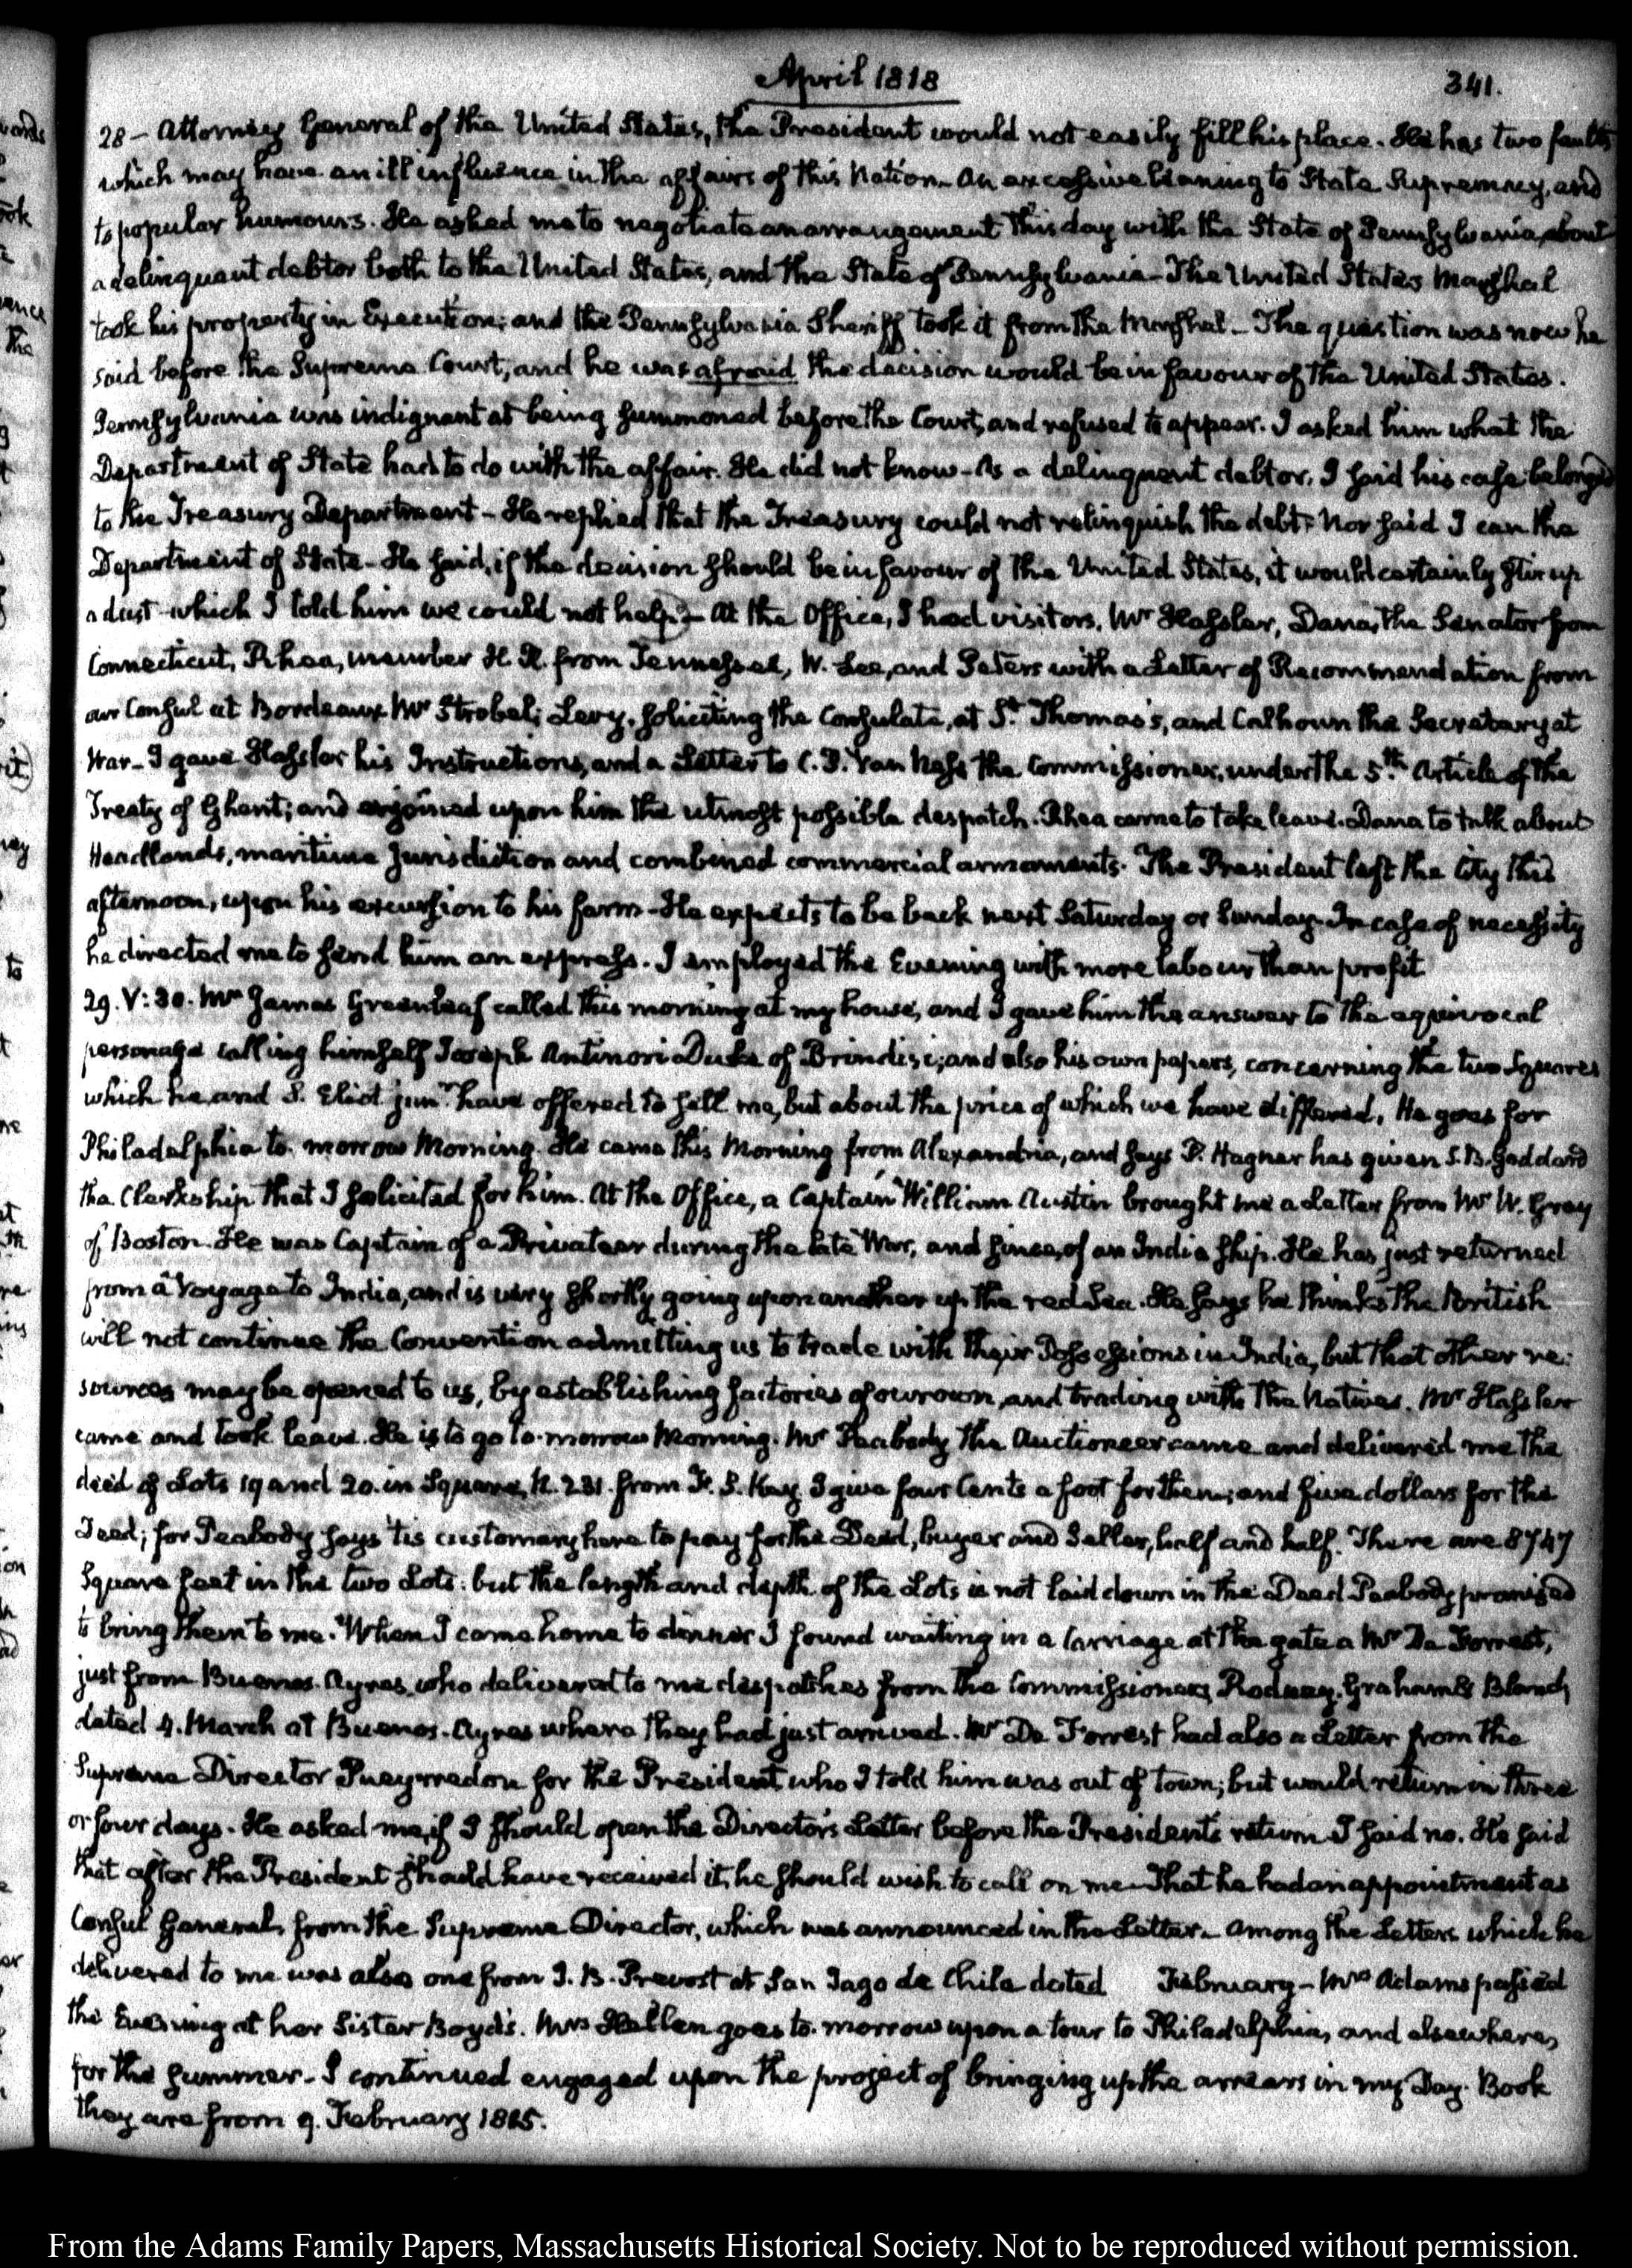 April 1818
341.
28 – Attorney General of the United States, the President would not easily fill his place. He has two faults
which may have an ill influence in the affairs of this Nation – An excessive leaning to State Supremacy, and
to popular humours. He asked me to negotiate an arrangement this day with the State of Pennsylvania, about
a delinquent debtor both to the United States, and the State of Pennsylvania – The United States Marshal
took his property in Execution; and the Pennsylvania Sheriff took it from the Marshal – The question was now he
said before the Supreme Court, and he was afraid the decision would be in favour of the United States.
Pennsylvania was indignant at being summoned before the Court, and refused to appear. I asked him what the
Department of State had to do with the affair. He did not know – As a delinquent debtor, I said his case belonged
to the Treasury Department – He replied that the Treasury could not relinquish the debt: Nor said I can the
Department of State – He said, if the decision should be in favour of the United States, it would certainly stir up
a dust – which I told him we could not help – At the Office, I had visitors, Mr Hassler, Dana, the Senator from
Connecticut, Rhea, member H. R. from Tennessee, W. Lee, and Peters with a Letter of Recommendation from
our Consul at Bordeaux Mr Strobel; Levy, soliciting the Consulate, at St. Thomas's, and Calhoun the Secretary at
War – I gave Hassler his Instructions, and a Letter to C. P. Van Ness the Commissioner, under the 5th Article of the
Treaty of Ghent; and enjoined upon him the utmost possible despatch. Rhea came to take leave. Dana to talk about
Headlands, maritime Jurisdiction and combined commercial armaments. The President left the City this
afternoon, upon his excursion to his farm – He expects to be back next Saturday or Sunday. In case of necessity
he directed me to send him an express. I employed the Evening with more labour than profit
29. V: 30. Mr James Greenleaf called this morning at my house, and I gave him the answer to the equivocal
personage calling himself Joseph Antinori Duke of Brindisi; and also his own papers, concerning the two Squares
which he, and S. Eliot junr. have offered to sell me, but about the price of which we have differed. He goes for
Philadelphia to-morrow Morning. He came this Morning from Alexandria, and says P. Hagner has given S. B. Goddard
the Clerkship that I solicited for him. At the Office, a Captain William Austin brought me a Letter from Mr W. Gray
of Boston. He was Captain of a Privateer during the late War, and since, of an India ship. He has just returned
from a Voyage to India, and is very shortly going upon another up the red Sea. He says he thinks the British
will not continue the Convention admitting us to trade with their Possessions in India, but that other re-
sources may be opened to us, by establishing factories of our own, and trading with the Natives. Mr Hassler
came and took leave. He is to go to-morrow Morning. Mr Peabody the Auctioneer came and delivered me the
deed of Lots 19 and 20. in Square N. 231. from F. S. Key I give four Cents a foot for them; and five dollars for the
Deed; for Peabody says 'tis customary here to pay for the Deed, buyer and Seller, half and half. There are 8747
Square feet in the two Lots: but the length and depth of the Lots is not laid down in the Deed Peabody promised
to bring them to me. When I came home to dinner I found waiting in a Carriage at the gate a Mr De Forrest,
just from Buenos-Ayres, who delivered to me despatches from the Commissioners Rodney, Graham & Bland,
dated 4. March at Buenos-Ayres where they had just arrived. Mr De Forrest had also a Letter from the
Supreme Director Pueyrredon for the President, who I told him was out of town; but would return in three
or four days. He asked me, if I should open the Director's Letter before the President's return I said no. He said
that after the President should have received it, he should wish to call on me – That he had an appointment as
Consul General, from the Supreme Director, which was announced in the Letter – Among the Letters which he
delivered to me was also one from J. B. Prevost at San Jago de Chile dated     February – Mrs Adams passed
the Evening at her Sister Boyd's. Mrs Hellen goes to-morrow upon a tour to Philadelphia, and elsewhere,
for the Summer – I continued engaged upon the project of bringing up the arrears in my Day-Book
they are from 9. February 1815.
From the Adams Family Papers, Massachusetts Historical Society. Not to be reproduced without permission.